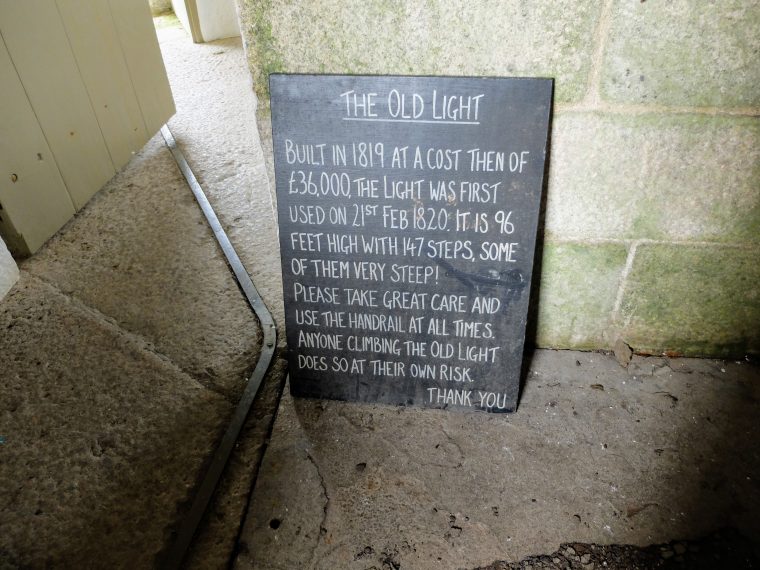 THE OLD LIGHT
BUILT IN 1819 AT A COST THEN OF
£36,000, THE LIGHT WAS FIRST
USED ON 21ST FEB 1820. IT IS 96
FEET HIGH WITH 147 STEPS, SOME
OF THEM VERY STEEP!
PLEASE TAKE GREAT CARE AND
USE THE HANDRAIL AT ALL TIMES.
ANYONE CLIMBING THE OLD LIGHT
DOES SO AT THEIR OWN RISK.
THANK YOU